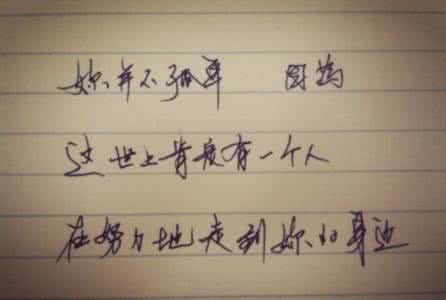 妳并不孤单 因为
这世上肯定有一个人
在努力地走到妳的身边